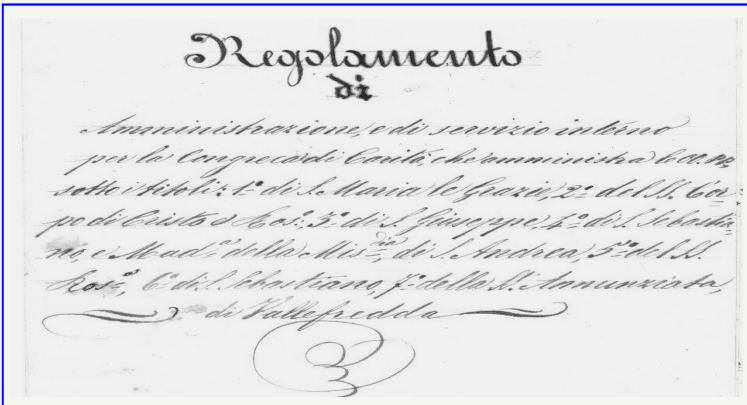 Regolamento
di
Amministrazione, e di servizio interno
per la Congreca di Carità, che amministra le OO. PP.
sotto i titoli: 1.º di S. Maria le Grazie, 2.º del SS. Cor
po di Cristo e Ros.º, 3.º di S. Giuseppe, 4.º di S. Sebastia
no, e Mad.ª della Mis.dia di S. Andrea, 5.º del SS.
Ros.º, 6.º di S. Sebastiano, 7.º della SS. Annunziata,
di Vallefredda